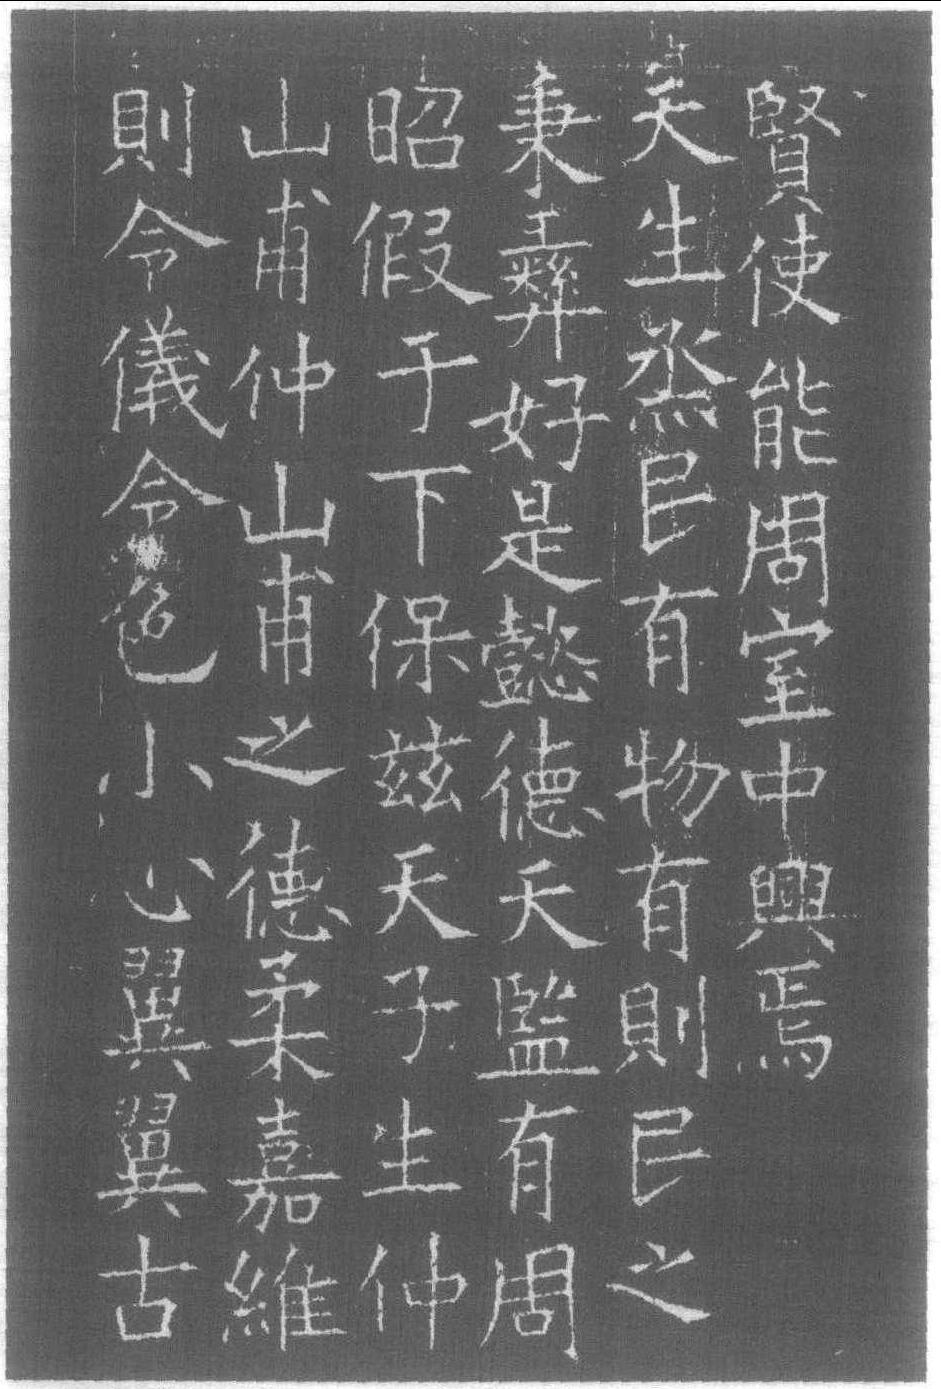 賢使能周室中興焉
天生烝民有物有則民之
秉彝好是懿德天監有周
昭假于下保茲天子生仲
山甫仲山甫之德柔嘉維
則令儀令色小心翼翼古